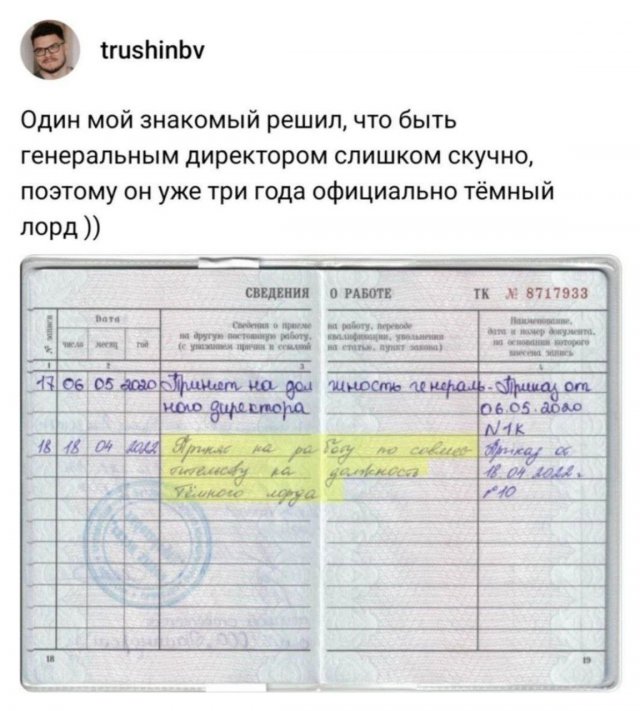 trushinbv
Один мой знакомый решил, что быть
генеральным директором слишком скучно,
поэтому он уже три года официально тёмный
лорд ))
СВЕДЕНИЯ О РАБОТЕ ТК № 8717933
№ записи
Дата
число месяц год
Сведения о приеме на работу, переводе
на другую постоянную работу, квалификации, увольнении
(с указанием причин и ссылкой на статью, пункт закона)
Наименование,
дата и номер документа,
на основании которого
внесена запись
1 2 3 4
17 06 05 2020 Принят на должность генераль- Приказ от
ного директора 06.05.2020
N1К
18 18 04 2022 Принят на работу по совмес Приказ от
тительству на должность 18.04.2022.
Тёмного лорда №10
18 19